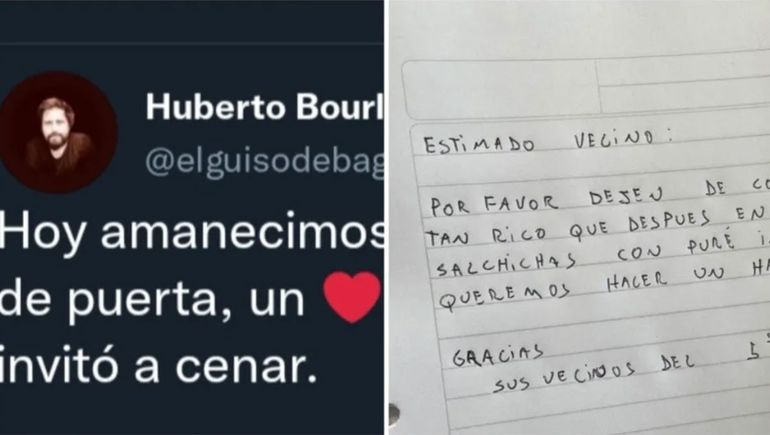 Huberto Bourl
@elguisodebag
Hoy amanecimos
de puerta, un ❤️
invitó a cenar.
ESTIMADO VECINO:
POR FAVOR DEJEN DE CO
TAN RICO QUE DESPUES EN
SALCHICHAS CON PURÉ I
QUEREMOS HACER UN HA
GRACIAS
SUS VECINOS DEL 5°